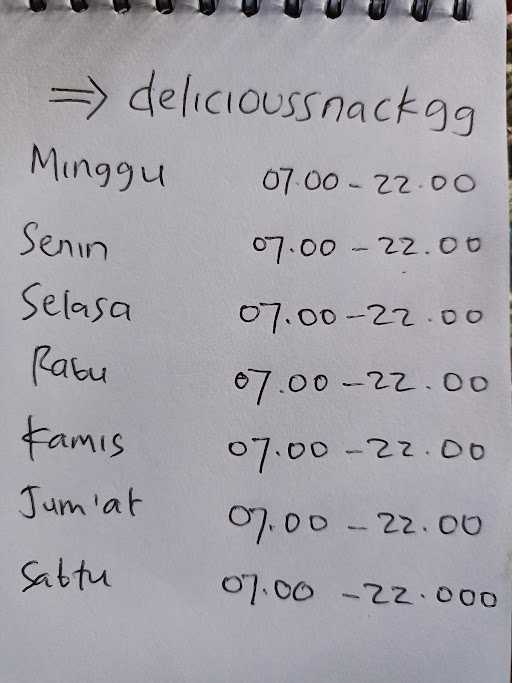 ⇒ delicioussnackgg
Minggu 07.00 - 22.00
Senin 07.00 - 22.00
Selasa 07.00 - 22.00
Rabu 07.00 - 22.00
Kamis 07.00 - 22.00
Jum'at 07.00 - 22.00
Sabtu 07.00 - 22.000